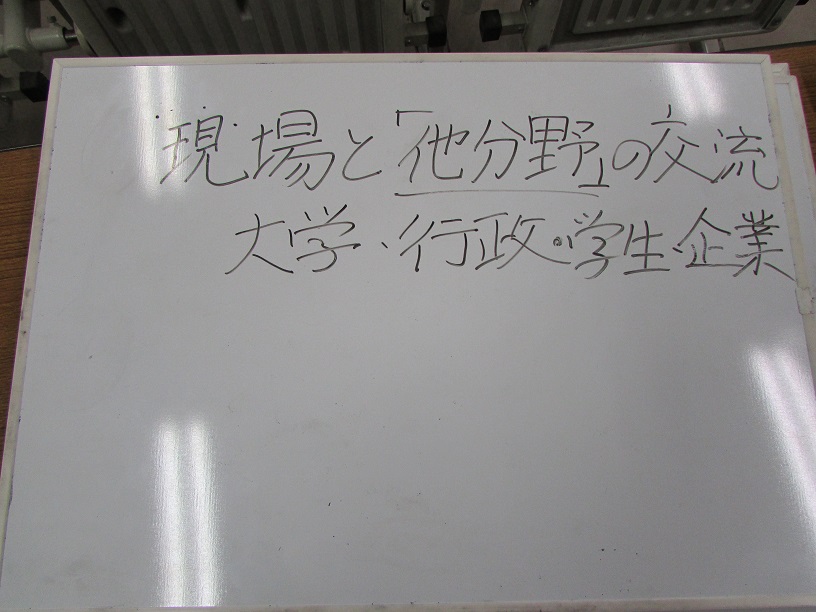 現場と「他分野」の交流
大学・行政・学生・企業